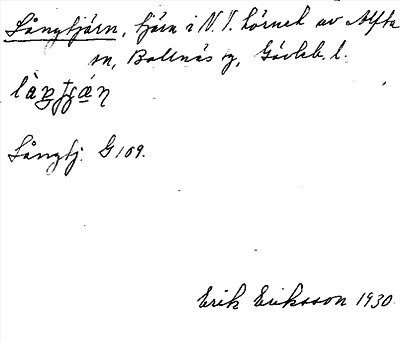 Långtjärn, tjärn i N.V. hörnet av Alfta
sn, Bollnäs tg, Gävleb. l.
Långtj. G 109.
Erik Eriksson 1930.